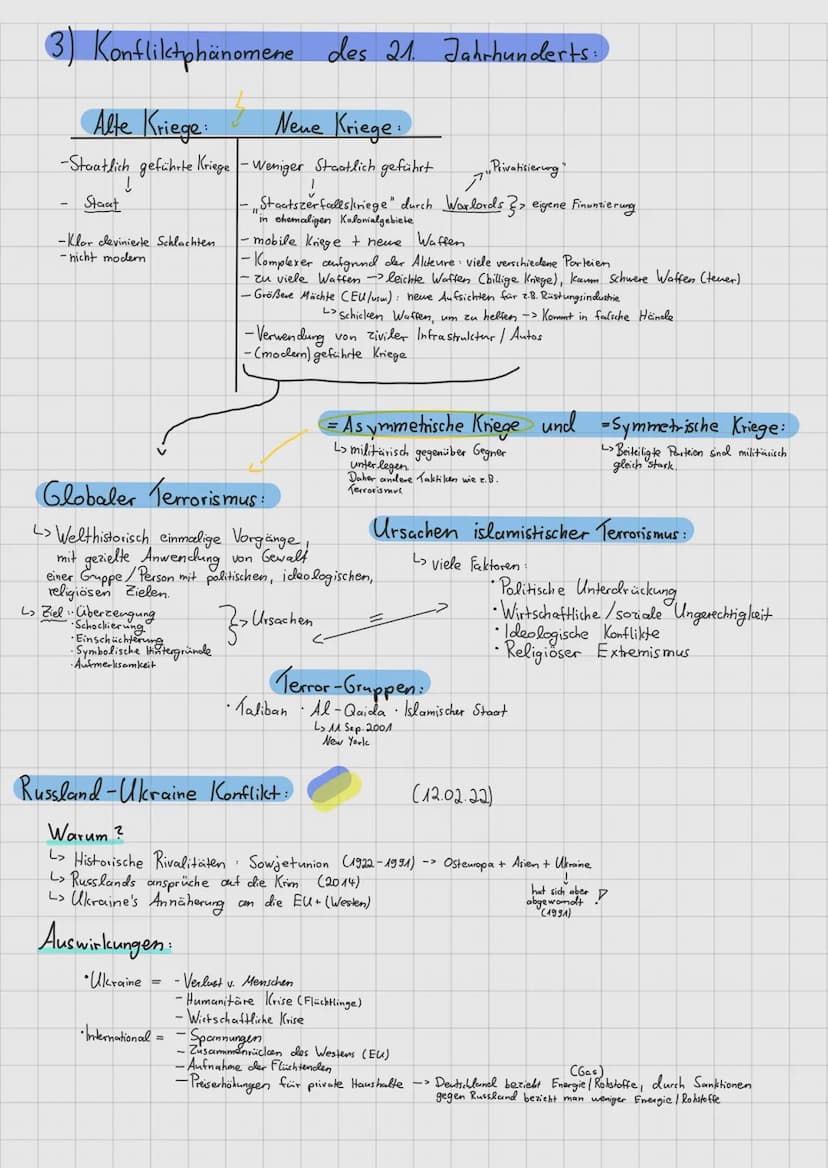 3) Konfliktphänomene des 21. Jahrhunderts:
Alte Kriege:
-Staatlich geführte Kriege
- Staat
-Klar devinierte Schlachten
-nicht modern
Neue Kriege:
-Weniger Staatlich geführt
„Privatisierung"
-„Staatszerfallskriege" durch Warlords }> eigene Finanzierung
in ehemaligen Kolonialgebiete
-mobile Kriege + neue Waffen
-Komplexer aufgrund der Akteure: viele verschiedene Parteien
-zu viele Waffen -> leichte Waffen (billige Kriege), kaum schwere Waffen (teuer)
-Größere Mächte (EU/usw): neue Aufsichten für z.B. Rüstungsindustrie
↳ schicken Waffen, um zu helfen -> Kommt in falsche Hände
-Verwendung von ziviler Infrastruktur / Autos
-(modern) geführte Kriege
=Asymmetrische Kriege und =Symmetrische Kriege:
↳ militärisch gegenüber Gegner
unterlegen.
Daher andere Taktiken wie z.B.
Terrorismus
↳ Beteiligte Parteien sind militärisch
gleich stark.
Globaler Terrorismus:
↳ Welthistorisch einmalige Vorgänge,
mit gezielte Anwendung von Gewalt
einer Gruppe/Person mit politischen, ideologischen,
religiösen Zielen.
↳ Ziel: · Überzeugung
· Schockierung
· Einschüchterung
· Symbolische Hintergründe
· Aufmerksamkeit
}> Ursachen
=
Ursachen islamistischer Terrorismus:
↳ viele Faktoren:
· Politische Unterdrückung
· Wirtschaftliche/soziale Ungerechtigkeit
· Ideologische Konflikte
· Religiöser Extremismus
Terror-Gruppen:
· Taliban · Al-Qaida · Islamischer Staat
↳ 11 Sep. 2001
New York
Russland-Ukraine Konflikt: (12.02.22)
Warum?
↳ Historische Rivalitäten: Sowjetunion (1922-1991) -> Osteuropa + Asien + Ukraine
↳ Russlands ansprüche auf die Krim (2014)
↳ Ukraine's Annäherung an die EU+(Westen)
hat sich aber
abgewandt !
(1991)
Auswirkungen:
· Ukraine = - Verlust v. Menschen
- Humanitäre Krise (Flüchtlinge)
- Wirtschaftliche Krise
· International = - Spannungen
- Zusammenrücken des Westens (EU)
- Aufnahme der Flüchtenden
(Gas)
- Preiserhöhungen für private Haushalte -> Deutschland bezieht Energie/Rohstoffe, durch Sanktionen
gegen Russland bezieht man weniger Energie/Rohstoffe